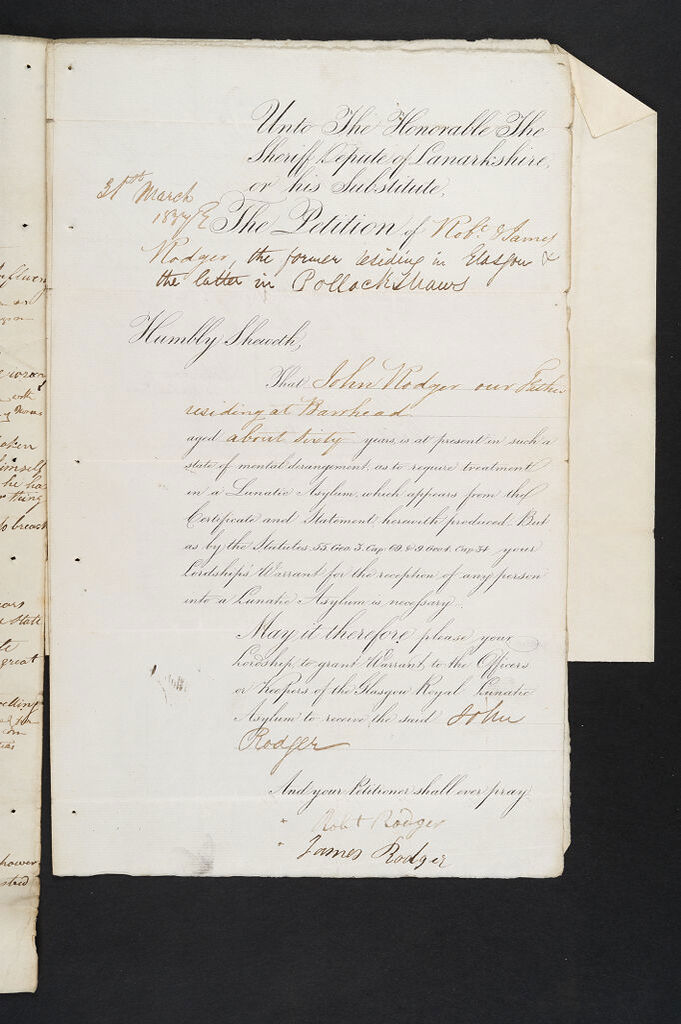 Unto The Honorable The
Sheriff Depute of Lanarkshire,
or his Substitute,
31st March
The Petition of Robt & James
Rodger, the former residing in Glasgow &
the latter in Pollockshaws
Humbly Sheweth,
That John Rodger our Father
residing at Barrhead
aged about sixty years, is at present in such a
state of mental derangement, as to require treatment
in a Lunatic Asylum, which appears from the
Certificate and Statement herewith produced. But
as by the Statutes 55 Geo. 3. Cap. 69 & 9 Geo 4. Cap. 34 your
Lordship's Warrant for the reception of any person
into a Lunatic Asylum is necessary.
May it therefore please your
Lordship, to grant Warrant, to the Officers
or Keepers of the Glasgow Royal Lunatic
Asylum to receive the said John
Rodger
And your Petitioner shall ever pray
Robt Rodger
James Rodger